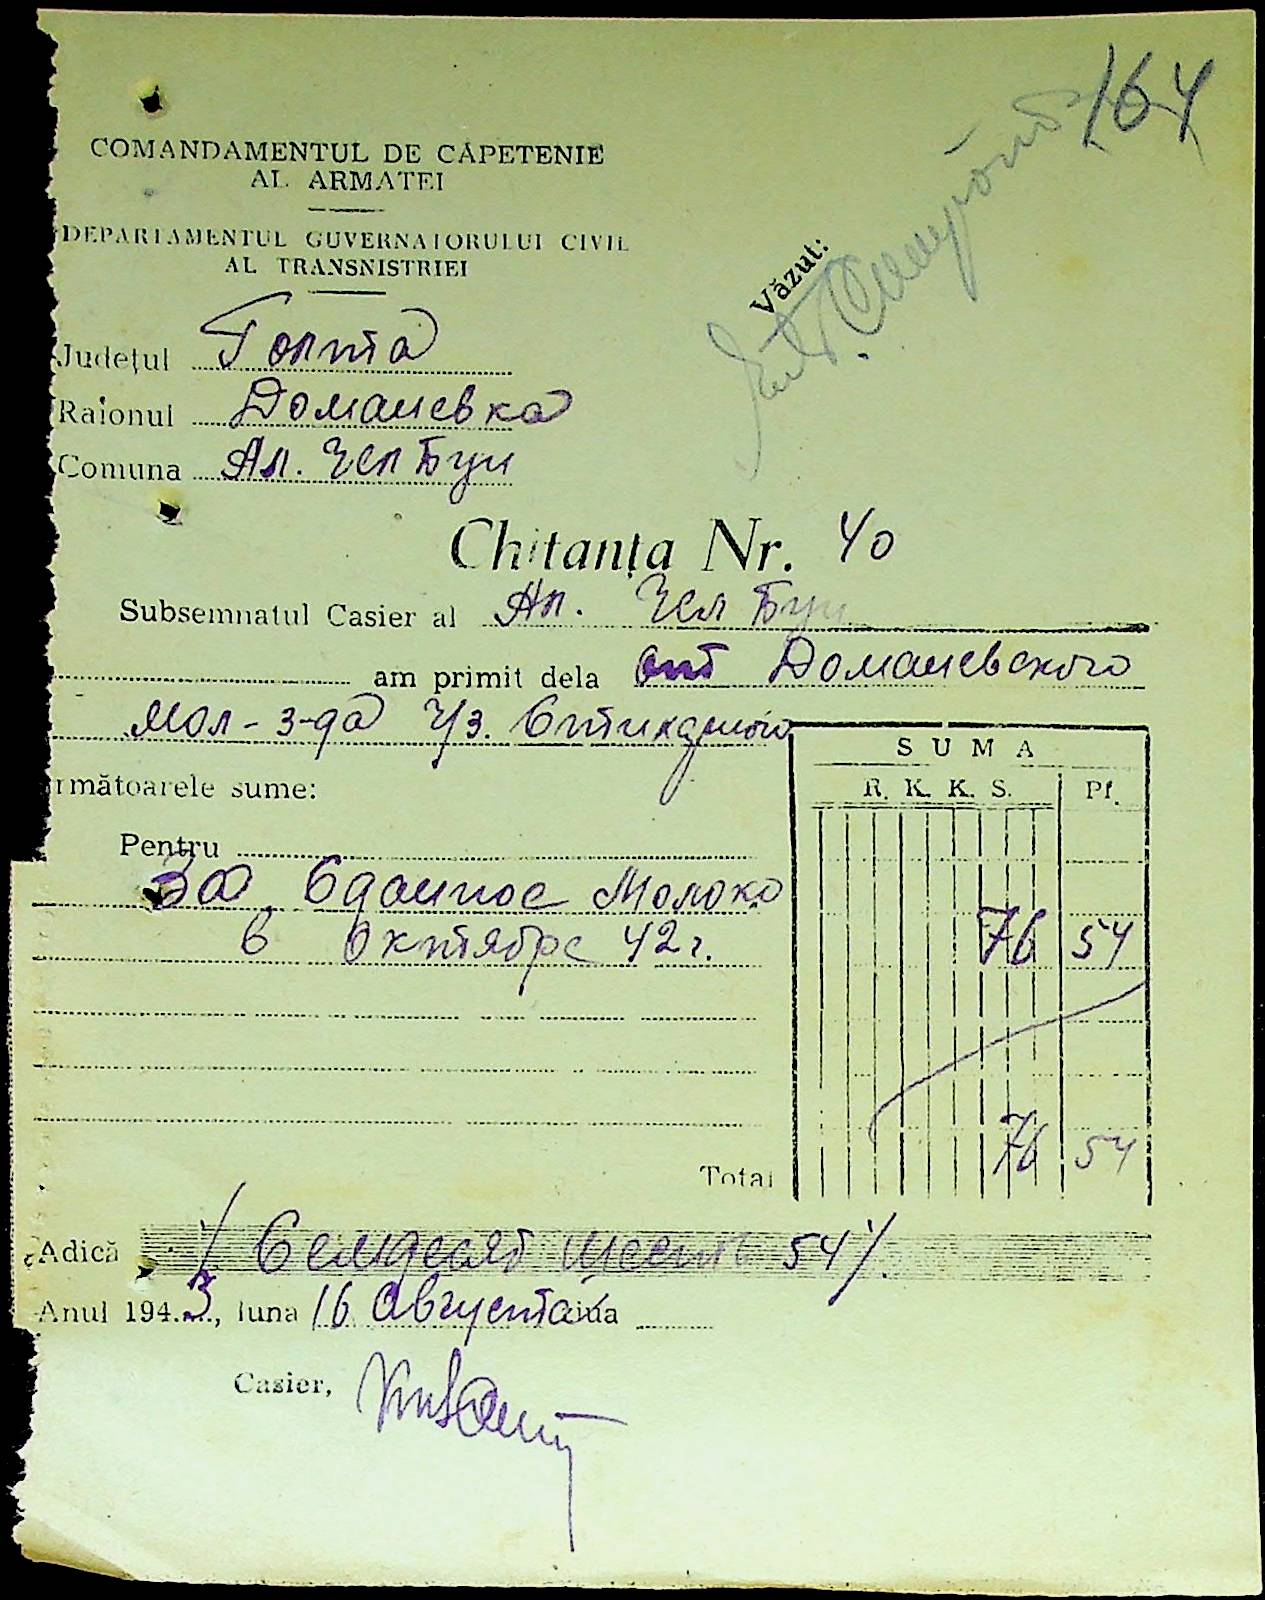 164
COMANDAMENTUL DE CAPETENIE
AL ARMATEI
DEPARTAMENTUL GUVERNATORULUI CIVIL
AL TRANSNISTRIEI
Văzut:
Județul Голта
Raionul Доманевка
Comuna Ал. Чел Бун
Chitanța Nr. 40
Subsemnatul Casier al Ал. Чел Бун
am primit dela от Доманевского
Мол-з-да ч/з.
rmătoarele sume:
SUMA
R. K. K. S. Pf.
Pentru
За сданное Молоко
в октябре 42 г. 76 54
Total 76 54
Adică / Семдесят шесть 54 /.
Anul 1943, luna 16 Августа ziua
Casier,